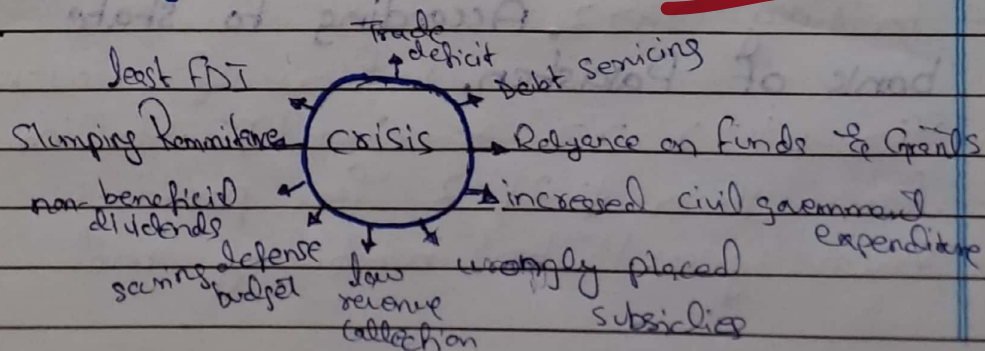 Trade
deficit
least FDI
Debt Servicing
Slumping Remmitance
Crisis
Relyance on funds & Grants
non-beneficial
dividends
increased civil government
expenditure
defense
budget
low
revenue
collection
wrongly placed
subsidies